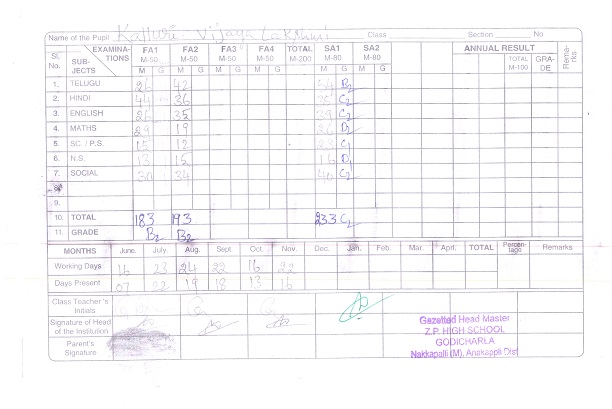 Name of the Pupil Kalluri Vijaya Lakshmi Class Section No
Sl. No. SUB-JECTS EXAMINA-TIONS FA1 M-50 FA2 M-50 FA3 M-50 FA4 M-50 TOTAL M-200 SA1 M-80 SA2 M-80 ANNUAL RESULT TOTAL M-100 GRA-DE Rema-rks
M G M G M G M G M G M G
1. TELUGU 26 42 54 B2
2. HINDI 44 36 35 C2
3. ENGLISH 26 35 39 C2
4. MATHS 29 19 26 D2
5. SC. / P.S. 15 12 23 C1
6. N.S. 13 15 16 D1
7. SOCIAL 30 34 40 C2
8.
9.
10. TOTAL 183 193 233 C2
11. GRADE B2 B2
MONTHS June. July. Aug. Sept Oct. Nov. Dec. Jan. Feb. Mar. Aprl. TOTAL Percen-tage Remarks
Working Days 16 23 24 22 16 22
Days Present 07 22 19 18 13 16
Class Teacher's Initials
Signature of Head of the Institution
Parent's Signature
Gazetted Head Master
Z.P. HIGH SCHOOL
GODICHARLA
Nakkapalli (M), Anakapalli Dist